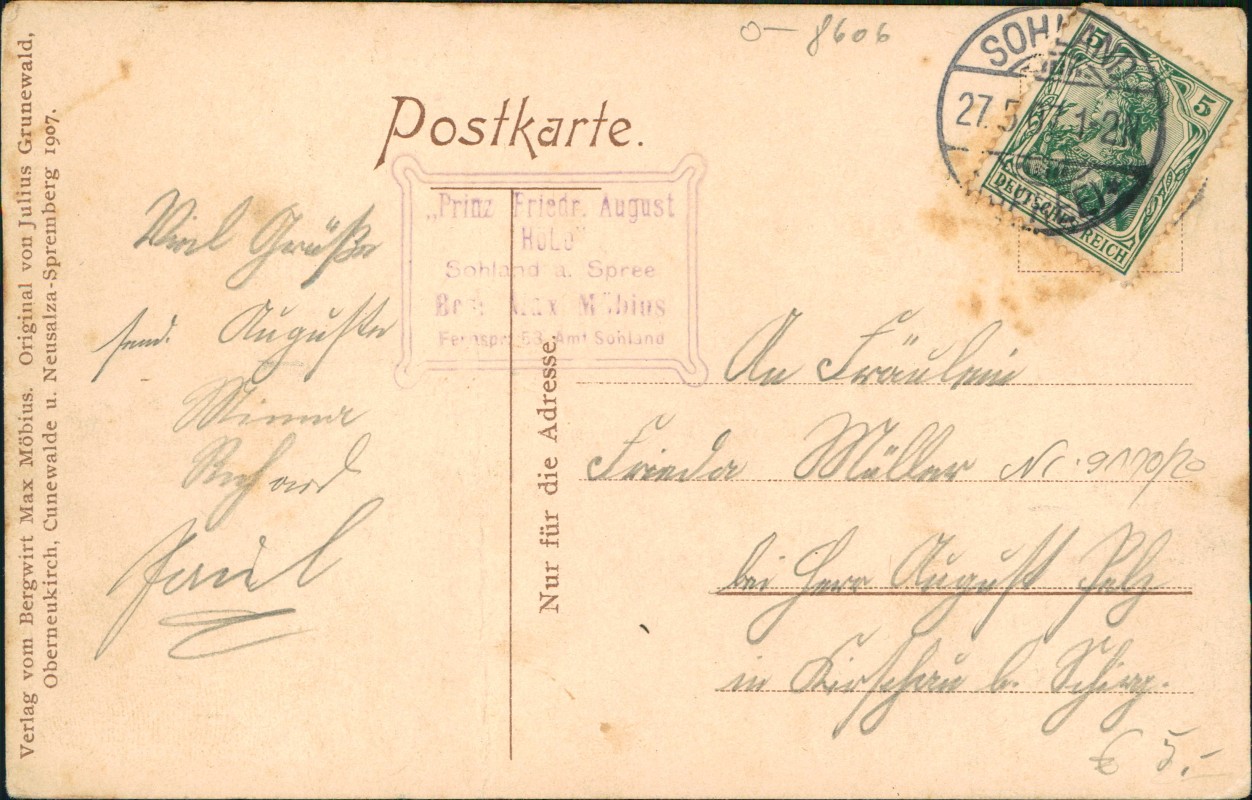 Verlag vom Bergwirt Max Möbius. Original von Julius Grunewald,
Oberneukirch, Cunewalde u. Neusalza-Spremberg 1907.
o- 8606
Postkarte.
SOHLAND
27.5.07. 1-2N
5
5
DEUTSCHES REICH
„Prinz Friedr. August
Höhe"
Sohland a. Spree
Bes. Max Möbius
Fernspr. 53, Amt Sohland
Viel Grüße
send. Auguste
Minna
Richard
Paul
Nur für die Adresse.
An Fräulein
Frieda Müller
bei Herr August Pelz
in Kirschau b. Schirg.
€ 5.-